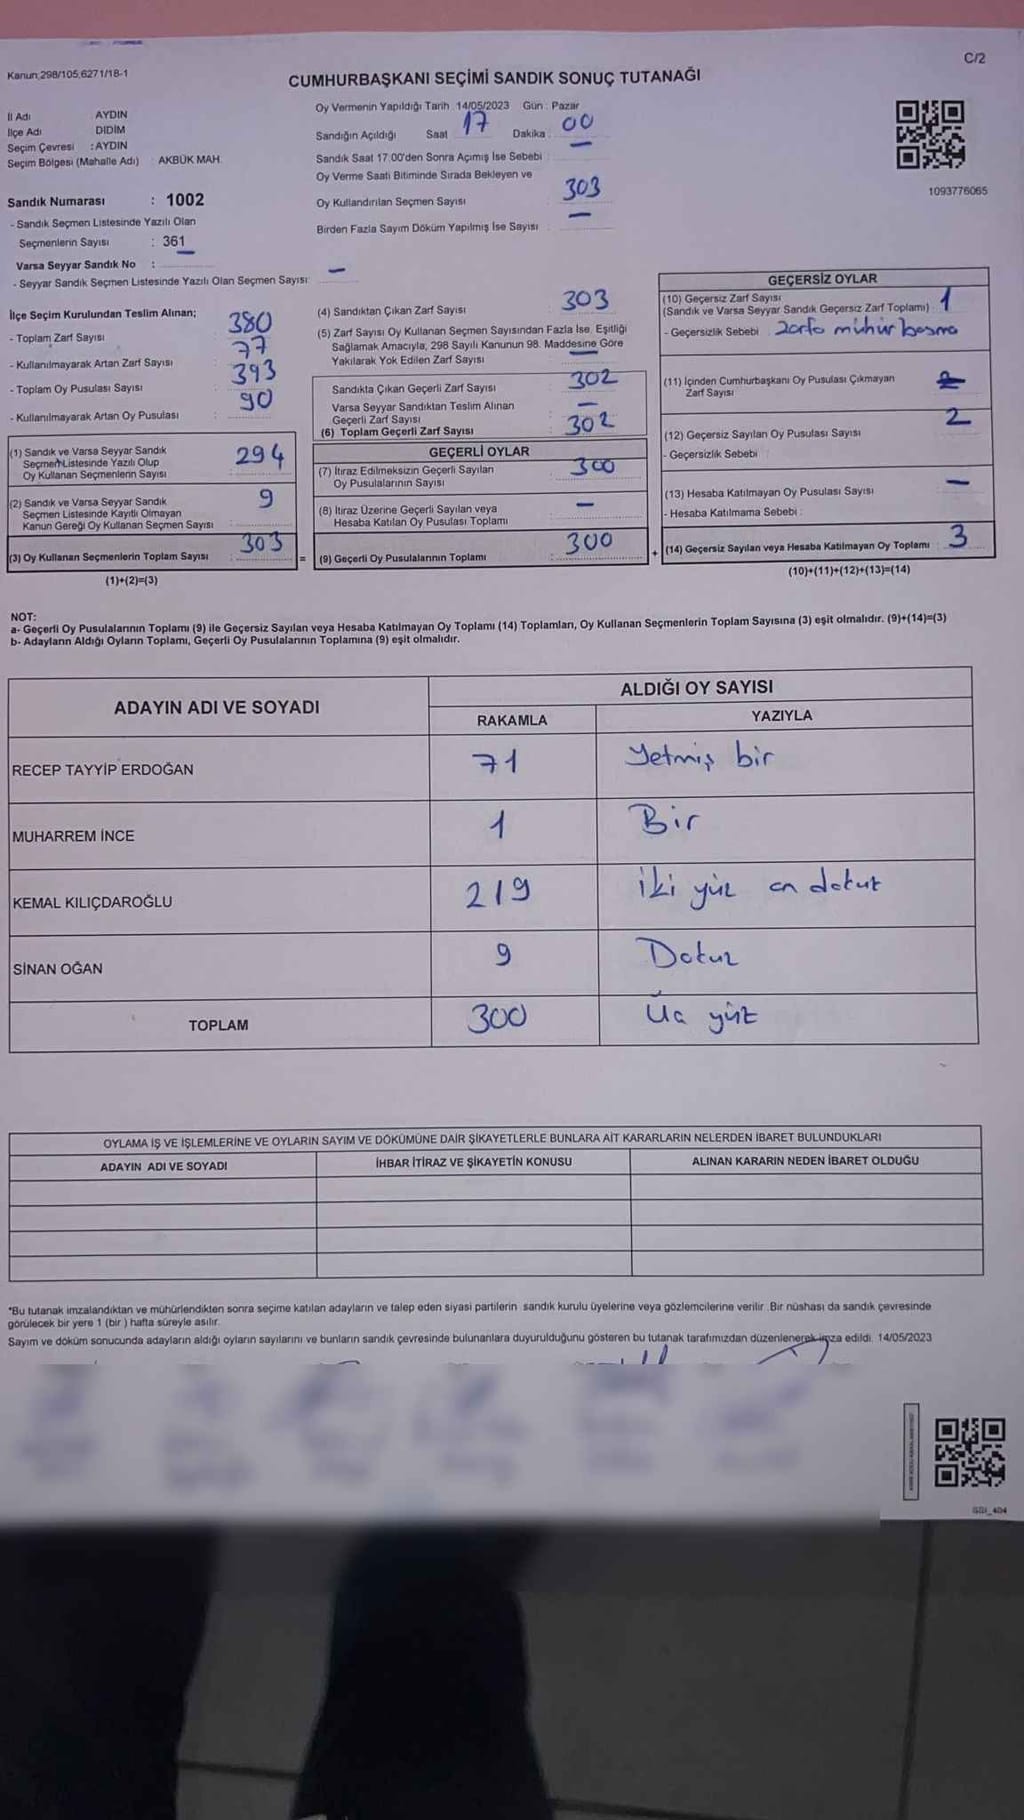 C/2
Kanun;298/105;6271/18-1
CUMHURBAŞKANI SEÇİMİ SANDIK SONUÇ TUTANAĞI
İl Adı AYDIN
İlçe Adı DİDİM
Seçim Çevresi : AYDIN
Seçim Bölgesi (Mahalle Adı) : AKBÜK MAH.
Sandık Numarası : 1002
- Sandık Seçmen Listesinde Yazılı Olan
Seçmenlerin Sayısı : 361
Varsa Seyyar Sandık No :
- Seyyar Sandık Seçmen Listesinde Yazılı Olan Seçmen Sayısı: -
Oy Vermenin Yapıldığı Tarih 14/05/2023 Gün : Pazar
Sandığın Açıldığı Saat 17 Dakika : 00
Sandık Saat 17.00'den Sonra Açımış İse Sebebi : -
Oy Verme Saati Bitiminde Sırada Bekleyen ve
Oy Kullandırılan Seçmen Sayısı : 303
Birden Fazla Sayım Döküm Yapılmış İse Sayısı : -
1093776065
İlçe Seçim Kurulundan Teslim Alınan;
- Toplam Zarf Sayısı : 380
- Kullanılmayarak Artan Zarf Sayısı : 77
- Toplam Oy Pusulası Sayısı : 393
- Kullanılmayarak Artan Oy Pusulası : 90
(1) Sandık ve Varsa Seyyar Sandık
Seçmen Listesinde Yazılı Olup
Oy Kullanan Seçmenlerin Sayısı : 294
(2) Sandık ve Varsa Seyyar Sandık
Seçmen Listesinde Kayıtlı Olmayan
Kanun Gereği Oy Kullanan Seçmen Sayısı : 9
(3) Oy Kullanan Seçmenlerin Toplam Sayısı : 303
(1)+(2)=(3)
(4) Sandıktan Çıkan Zarf Sayısı : 303
(5) Zarf Sayısı Oy Kullanan Seçmen Sayısından Fazla İse, Eşitliği
Sağlamak Amacıyla, 298 Sayılı Kanunun 98. Maddesine Göre
Yakılarak Yok Edilen Zarf Sayısı : -
Sandıkta Çıkan Geçerli Zarf Sayısı : 302
Varsa Seyyar Sandıktan Teslim Alınan
Geçerli Zarf Sayısı : -
(6) Toplam Geçerli Zarf Sayısı : 302
GEÇERLİ OYLAR
(7) İtiraz Edilmeksizin Geçerli Sayılan
Oy Pusulalarının Sayısı : 300
(8) İtiraz Üzerine Geçerli Sayılan veya
Hesaba Katılan Oy Pusulası Toplamı : -
= (9) Geçerli Oy Pusulalarının Toplamı : 300
GEÇERSİZ OYLAR
(10) Geçersiz Zarf Sayısı
(Sandık ve Varsa Seyyar Sandık Geçersiz Zarf Toplamı) : 1
- Geçersizlik Sebebi : zarfa mühür basma
(11) İçinden Cumhurbaşkanı Oy Pusulası Çıkmayan
Zarf Sayısı :
(12) Geçersiz Sayılan Oy Pusulası Sayısı : 2
- Geçersizlik Sebebi :
(13) Hesaba Katılmayan Oy Pusulası Sayısı : -
- Hesaba Katılmama Sebebi :
+ (14) Geçersiz Sayılan veya Hesaba Katılmayan Oy Toplamı : 3
(10)+(11)+(12)+(13)=(14)
NOT:
a- Geçerli Oy Pusulalarının Toplamı (9) ile Geçersiz Sayılan veya Hesaba Katılmayan Oy Toplamı (14) Toplamları, Oy Kullanan Seçmenlerin Toplam Sayısına (3) eşit olmalıdır. (9)+(14)=(3)
b- Adayların Aldığı Oyların Toplamı, Geçerli Oy Pusulalarının Toplamına (9) eşit olmalıdır.
ADAYIN ADI VE SOYADI
ALDIĞI OY SAYISI
RAKAMLA YAZIYLA
RECEP TAYYİP ERDOĞAN 71 Yetmiş bir
MUHARREM İNCE 1 Bir
KEMAL KILIÇDAROĞLU 219 iki yüz on dokuz
SİNAN OĞAN 9 Dokuz
TOPLAM 300 Üç yüz
OYLAMA İŞ VE İŞLEMLERİNE VE OYLARIN SAYIM VE DÖKÜMÜNE DAİR ŞİKAYETLERLE BUNLARA AİT KARARLARIN NELERDEN İBARET BULUNDUKLARI
ADAYIN ADI VE SOYADI İHBAR İTİRAZ VE ŞİKAYETİN KONUSU ALINAN KARARIN NEDEN İBARET OLDUĞU
*Bu tutanak imzalandıktan ve mühürlendikten sonra seçime katılan adayların ve talep eden siyasi partilerin sandık kurulu üyelerine veya gözlemcilerine verilir. Bir nüshası da sandık çevresinde
görülecek bir yere 1 (bir ) hafta süreyle asılır.
Sayım ve döküm sonucunda adayların aldığı oyların sayılarını ve bunların sandık çevresinde bulunanlara duyurulduğunu gösteren bu tutanak tarafımızdan düzenlenerek imza edildi. 14/05/2023